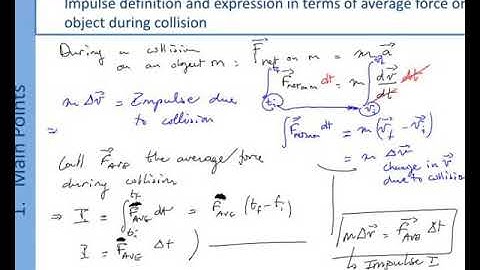 Impulse definition and expression in terms of average force on
object during collision
1. Main Points
During a collision
on an object m : F⃗ net on m = m a⃗
F⃗ net on m dt = m dv⃗/dt dt
t_i v_i
m Δv⃗ = Impulse due
to collision
∫ F⃗ net on m dt = m (v⃗_f - v⃗_i)
⇒
= m Δv⃗
change in v⃗
due to collision
Call F⃗_AVE the average force
during collision
⇒ I = ∫ F⃗_AVE dt = F⃗_AVE (t_f - t_i)
t_i
I = F⃗_AVE Δt
m Δv⃗ = F⃗_AVE Δt
↳ Impulse I